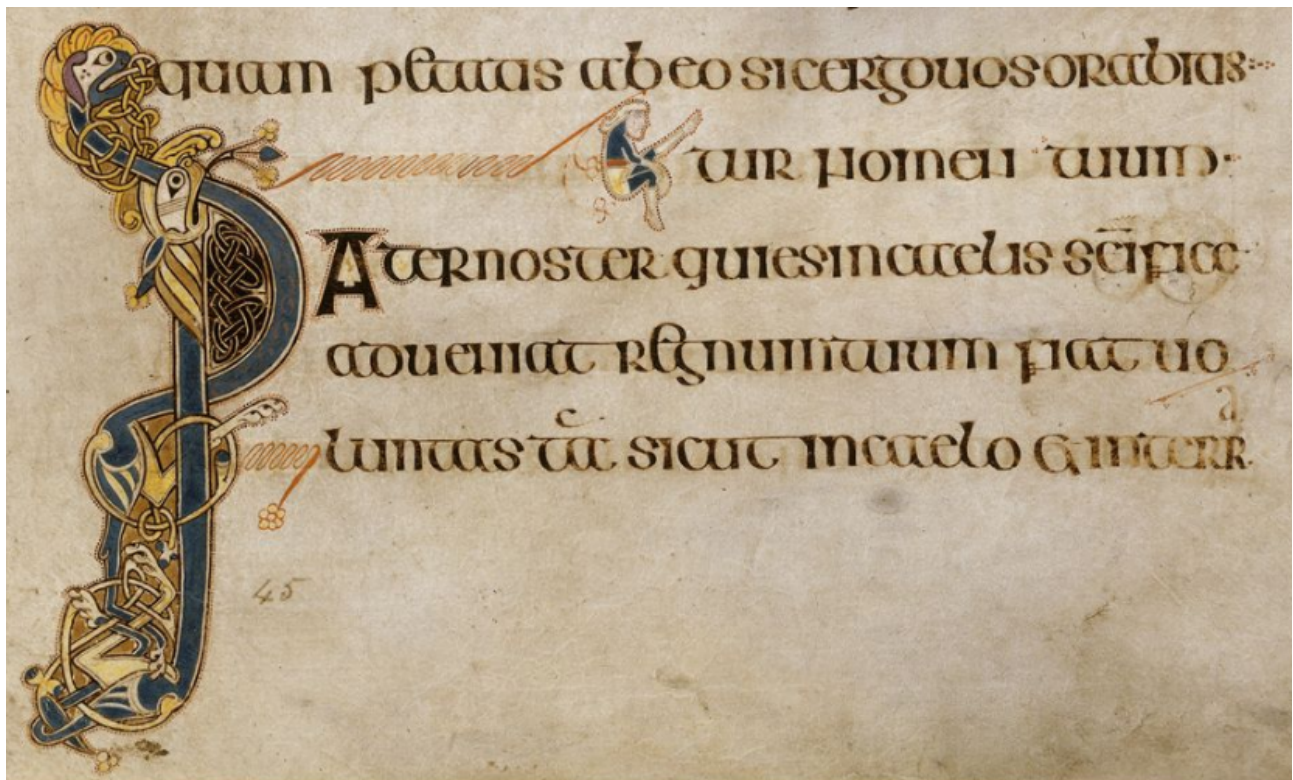 quam petatis ab eo sic ergo uos orabitis
tur nomen tuum·
PAter noster qui es in caelis sc̄ifica
adueniat regnum tuum fiat uo
luntas tua sicut in caelo & in terra
45